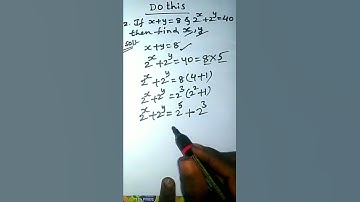 Do this
2. If x+y=8 & 2^x+2^y=40
then find x,y
Soln:
x+y=8
2^x+2^y=40=8×5
2^x+2^y=8(4+1)
2^x+2^y=2^3(2^2+1)
2^x+2^y=2^5+2^3